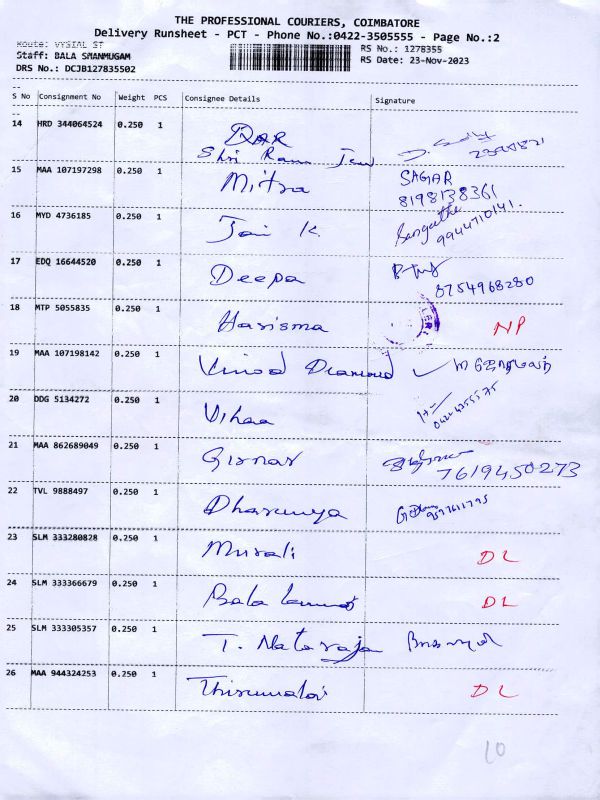 THE PROFESSIONAL COURIERS, COIMBATORE
Delivery Runsheet - PCT - Phone No.:0422-3505555 - Page No.:2
Route: VYSIAL ST
Staff: BALA SMANMUGAM
DRS No.: DCJB127835502
RS No.: 1278355
RS Date: 23-Nov-2023
S No Consignment No Weight PCS Consignee Details Signature
14 HRD 344064524 0.250 1
Shri Ram
15 MAA 107197298 0.250 1 Mitra SAGAR
8198138361
16 MYD 4736185 0.250 1 Jai K. Sangeetha
9944710141.
17 EDQ 16644520 0.250 1 Deepa
8754968280
18 MTP 5055835 0.250 1 Harisma NP
19 MAA 107198142 0.250 1 Vinod Diamond
20 DDG 5134272 0.250 1 Vihaa
21 MAA 862689049 0.250 1 Girnar
7619450273
22 TVL 9888497 0.250 1 Dharunya
23 SLM 333280828 0.250 1 Murali DL
24 SLM 333366679 0.250 1 Bala DL
25 SLM 333305357 0.250 1 T. Natarajan
26 MAA 944324253 0.250 1 Thirumalai DL
10